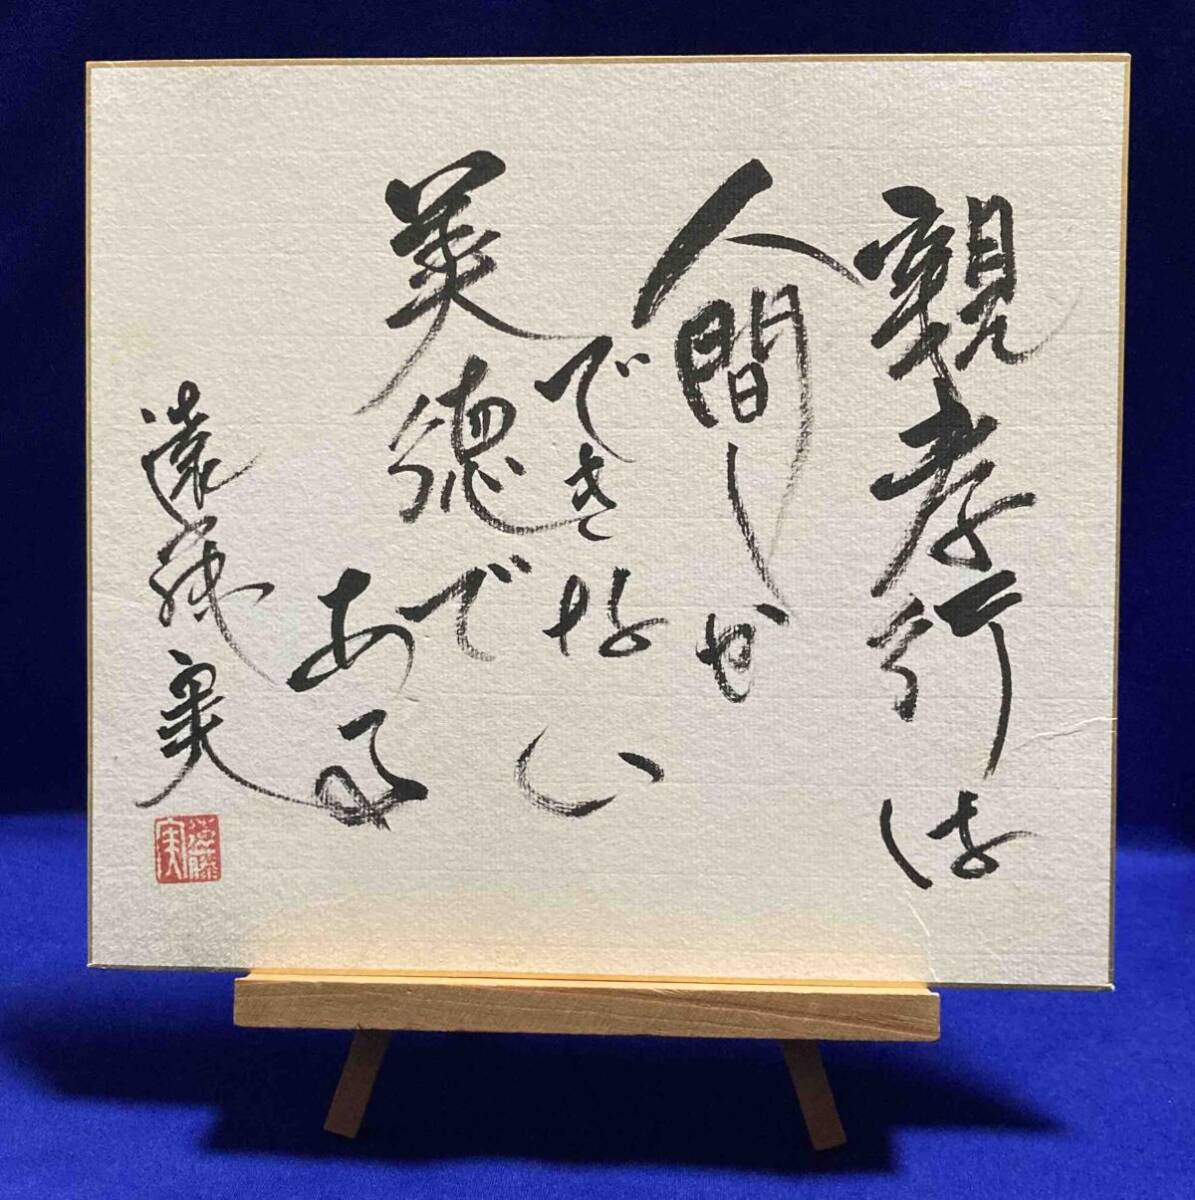 親孝行は
人間しか
できない
美徳で
ある
遠藤実
遠藤
実